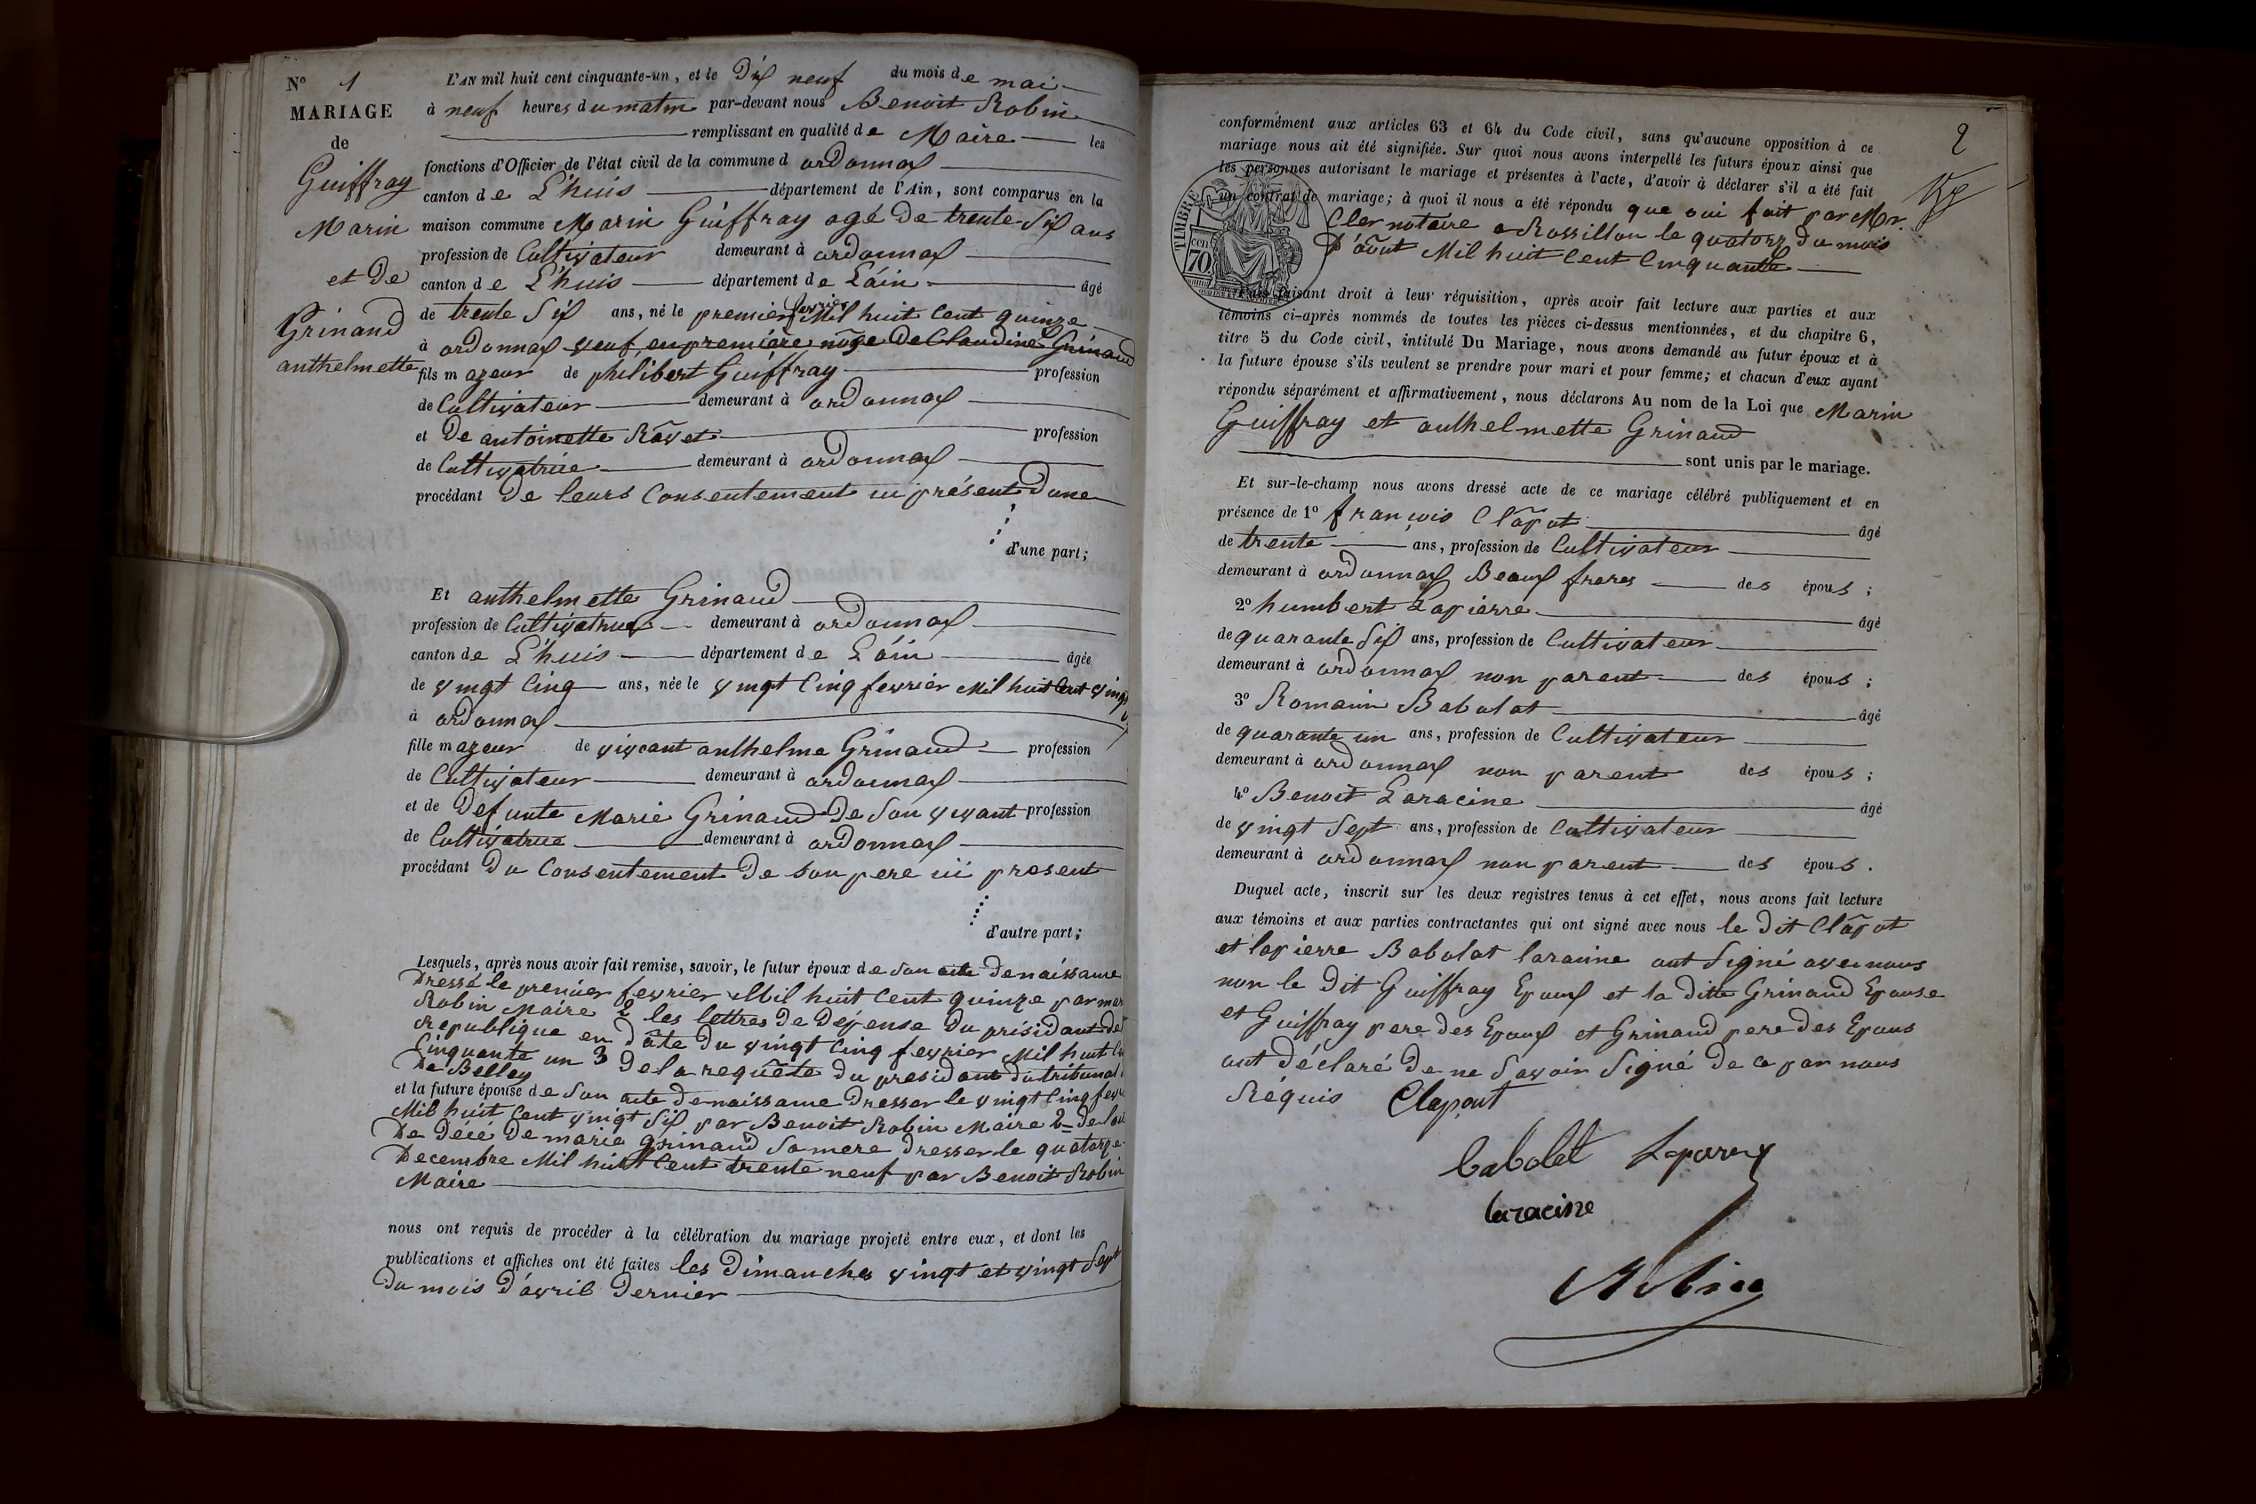 N° 1
MARIAGE
de
Guiffray
Marin
et de
Grinand
anthelmette
L'AN mil huit cent cinquante-un, et le Dix neuf du mois de mai
à neuf heures du matin par-devant nous Benoit Robin
remplissant en qualité de Maire les
fonctions d'Officier de l'état civil de la commune d ordonnax
canton de L'huis département de l'Ain, sont comparus en la
maison commune Marin Guiffray agé de trente-Six ans
profession de Cultivateur demeurant à ordonnax
canton de L'huis département de L'áin âgé
de trente Six ans, né le premier fevrier Mil huit Cent quinze
à ordonnax veuf en première nôce De Claudine Grinand
fils mageur de philibert Guiffray profession
de Cultivateur demeurant à ordonnax
et De antoinette Râvet profession
de Cultivatrice demeurant à ordonnax
procédant De leurs Consentement ici présent D'une
d'une part;
Et anthelmette Grinand
profession de Cultivatrice demeurant à ordonnax
canton de L'huis département de L'áin âgée
de vingt Cinq ans, née le vingt Cinq fevrier Mil huit Cent vingt
à ordonnax
fille mageur de vivant anthelme Grinand profession
de Cultivateur demeurant à ordonnax
et de Defunte Marie Grinand De Son vivant profession
de Cultivatrice demeurant à ordonnax
procédant Du Consentement De Son pere ici present
d'autre part;
Lesquels, après nous avoir fait remise, savoir, le futur époux de Son acte De naissance
Dressé le premier fevrier Mil huit Cent quinze par
Robin Maire 2 les lettres De Dépense Du présidant de
republique en Dâte Du vingt Cinq fevrier Mil huit
Cinquante un 3 De la requête Du presidant Du tribunal
De Belley
et la future épouse de Son acte De naissance Dresser le vingt Cinq
Mil huit Cent vingt Six par Benoit Robin Maire 2= De
De Décé De marie Grinand Sa mere Dresser le quatorze
Decembre Mil huit Cent trente neuf par Benoit Robin
Maire
nous ont requis de procéder à la célébration du mariage projeté entre eux, et dont les
publications et affiches ont été faites les Dimanches vingt et vingt Sept
Du mois D'avril Dernier
2
conformément aux articles 63 et 64 du Code civil, sans qu'aucune opposition à ce
mariage nous ait été signifiée. Sur quoi nous avons interpellé les futurs époux ainsi que
les personnes autorisant le mariage et présentes à l'acte, d'avoir à déclarer s'il a été fait
un contrat de mariage; à quoi il nous a été répondu que oui fait par Mr.
Cler notaire a Rossillon le quatorz Du mois
D'âout Mil huit Cent Cinquante
TIMBRE
70
Puis faisant droit à leur réquisition, après avoir fait lecture aux parties et aux
témoins ci-après nommés de toutes les pièces ci-dessus mentionnées, et du chapitre 6,
titre 5 du Code civil, intitulé Du Mariage, nous avons demandé au futur époux et à
la future épouse s'ils veulent se prendre pour mari et pour femme; et chacun d'eux ayant
répondu séparément et affirmativement, nous déclarons Au nom de la Loi que Marin
Guiffray et anthelmette Grinand
sont unis par le mariage.
Et sur-le-champ nous avons dressé acte de ce mariage célébré publiquement et en
présence de 1° françois Clâpot âgé
de trente ans, profession de Cultivateur
demeurant à ordonnax Beaux freres des épous;
2° humbert Lapierre âgé
de quarante Six ans, profession de Cultivateur
demeurant à ordonnax non parent des épous;
3° Romain Babolat âgé
de quarante un ans, profession de Cultivateur
demeurant à ordonnax non parent des épous;
4° Benoit Laracine âgé
de vingt Sept ans, profession de Cultivateur
demeurant à ordonnax non parent des épous.
Duquel acte, inscrit sur les deux registres tenus à cet effet, nous avons fait lecture
aux témoins et aux parties contractantes qui ont signé avec nous le Dit Clâpot
et lapierre Babolat laracine ont Signé avec nous
non le Dit Guiffray Epoux et la Ditte Grinand Epouse
et Guiffray pere des Epoux et Grinand pere des Epous
ont Déclaré De ne Savoir Signé De ce par nous
Réquis Clapout
babolet
laracine
Robin